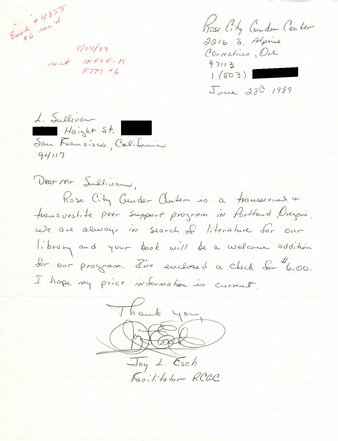 Esch #4355
$6 rec'd
7/24/89
sent INFO F-M
FTM #6
Rose City Gender Center
2216 S. Alpine
Cornelius, Ore
97113
1 (503)
June 23rd 1989
L. Sullivan
Haight St.
San Francisco, California
94117
Dear Mr. Sullivan,
Rose City Gender Center is a transexual &
transvestite peer support program in Portland, Oregon.
We are always in search of literature for our
library and your book will be a welcome addition
for our program. I've enclosed a check for $6.00.
I hope my price information is current.
Thank you,
Joy L. Esch
Facilitator RCGC